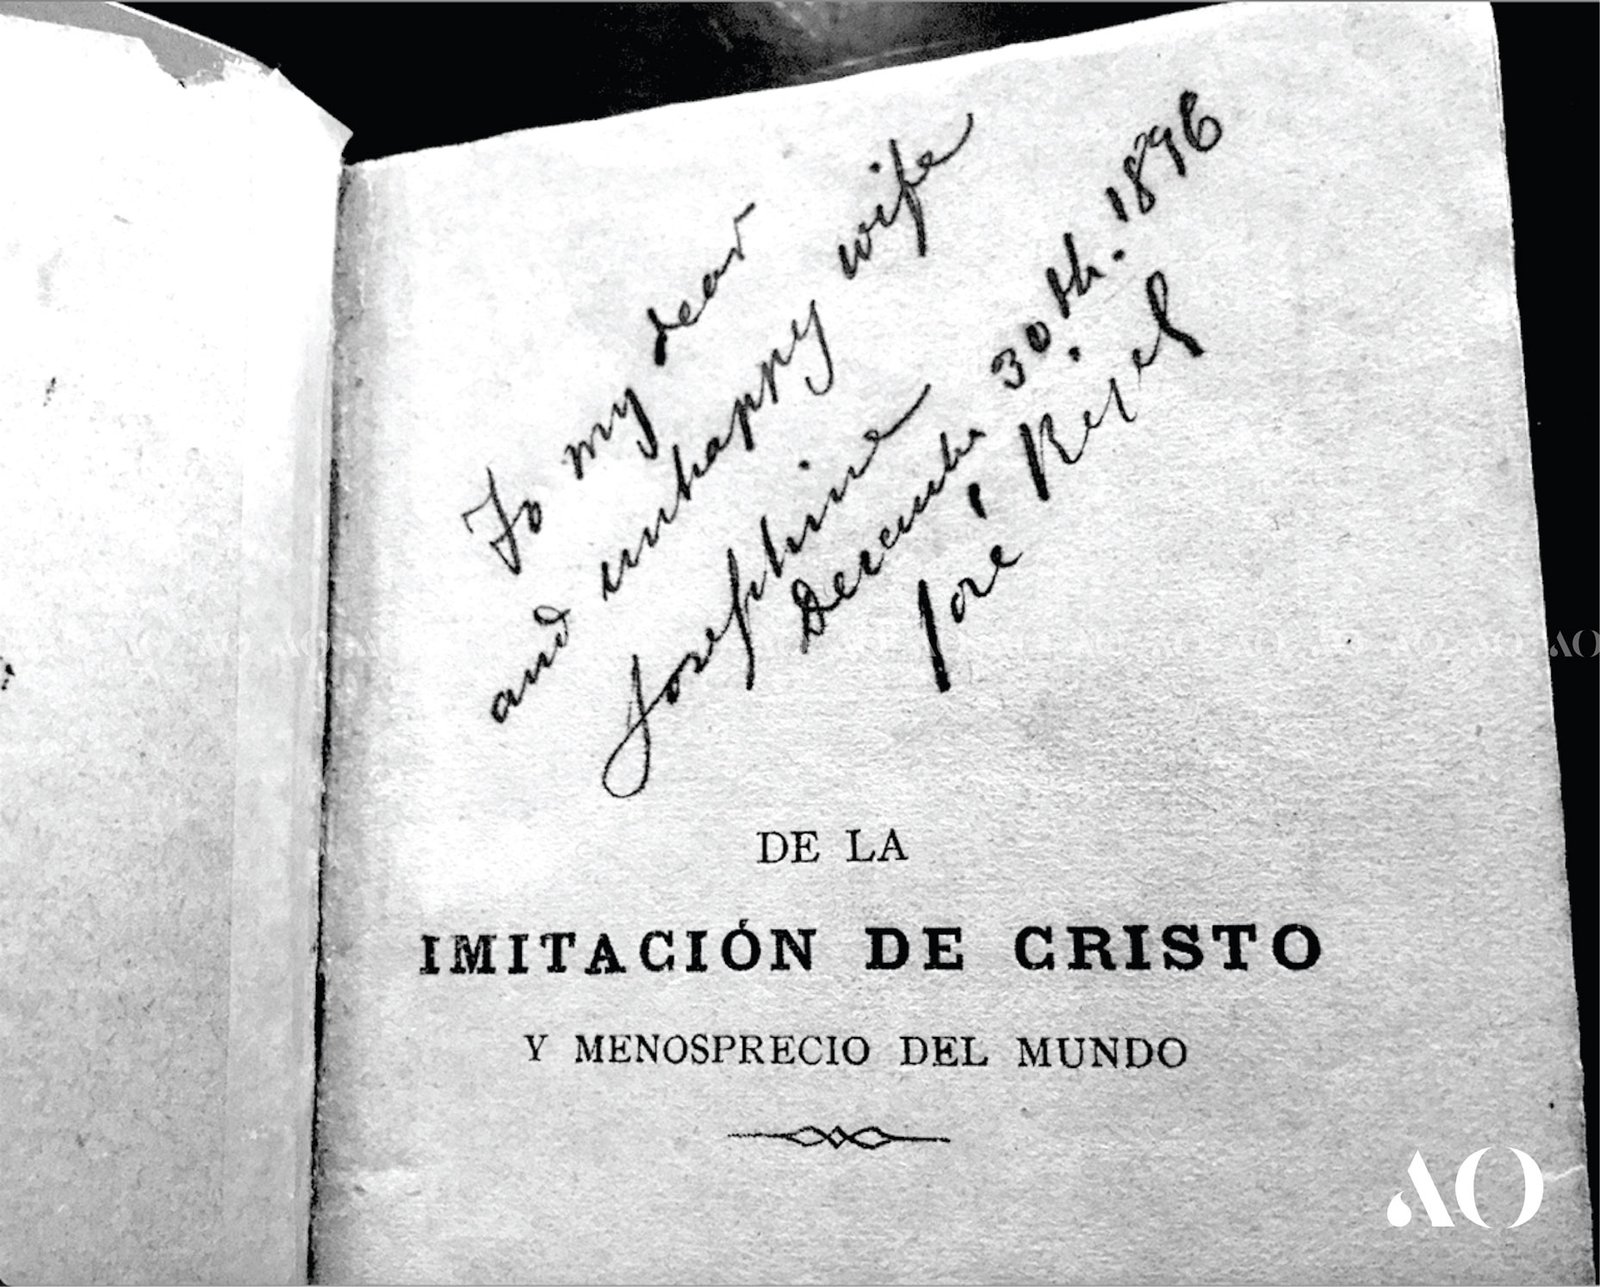 To my dear
and unhappy wife
Josephine
December 30th. 1896
José Rizal
DE LA
IMITACIÓN DE CRISTO
Y MENOSPRECIO DEL MUNDO
AO